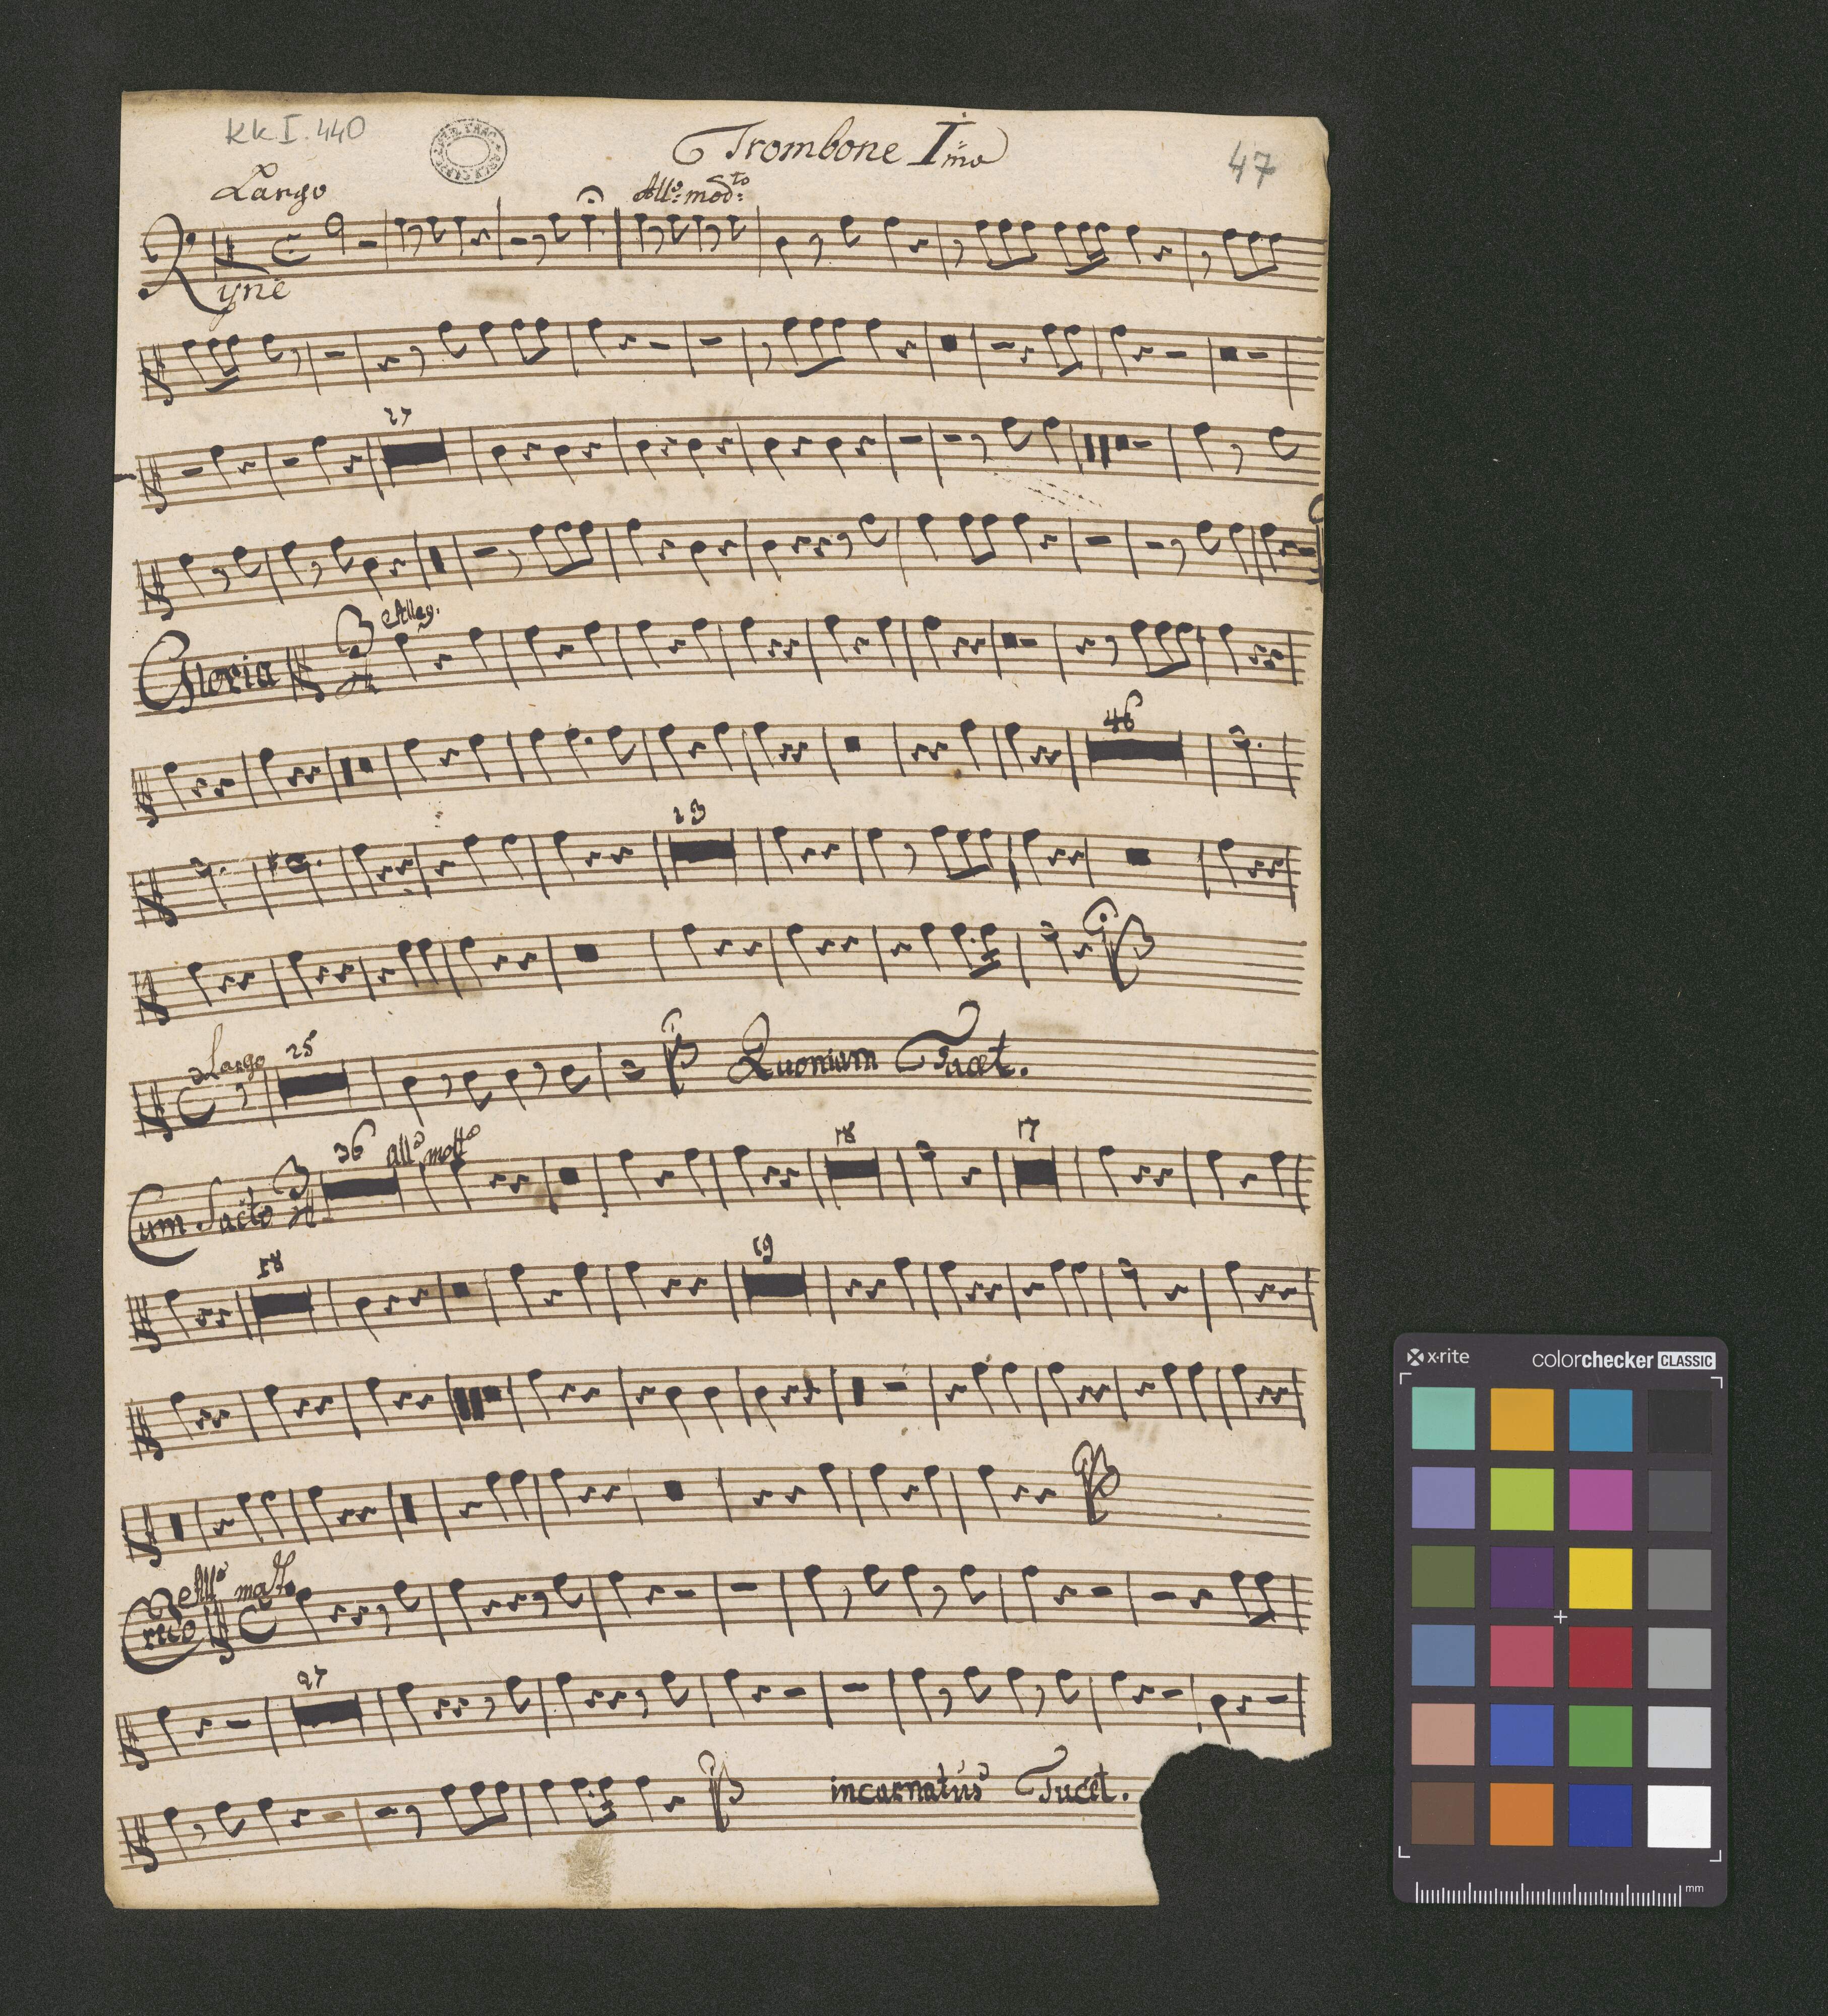 KK I. 440
Trombone I:mo
47
Largo
All:o mod:to
Kyrie
27
Gloria
Alleg.
46
23
Largo 25
Quoniam Tacet.
36 all:o molto
18
17
Cum Sacto
58
19
All:o molto
Credo
27
incarnatus Tacet.
x·rite
colorchecker CLASSIC
mm